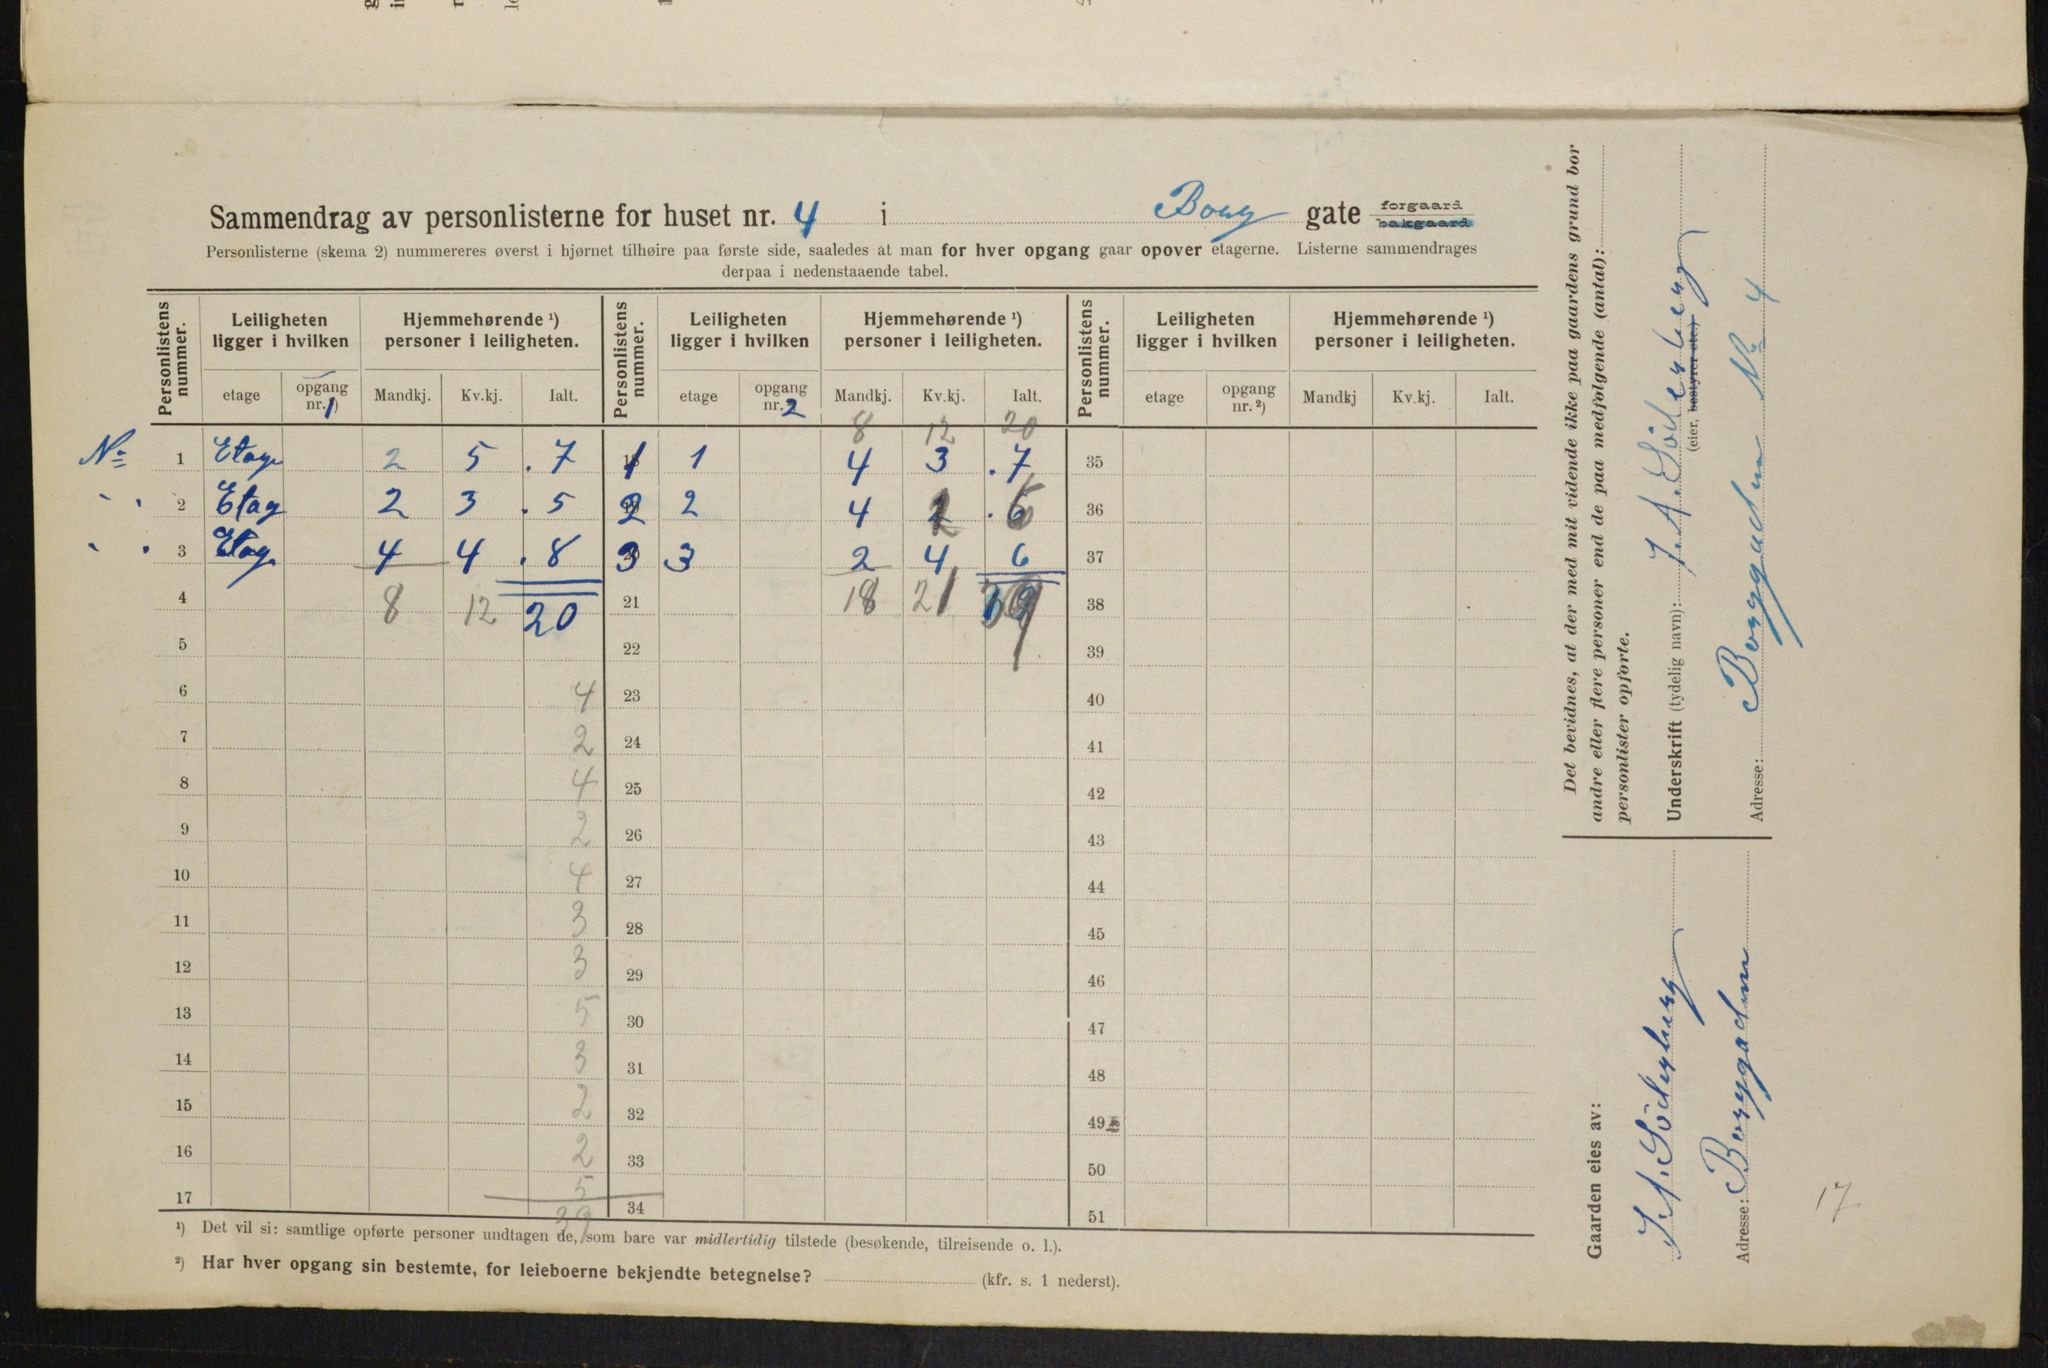 Sammendrag av personlisterne for huset nr. 4 i Borg gate forgaard bakgaard
Personlisterne (skema 2) nummereres øverst i hjørnet tilhøire paa første side, saaledes at man for hver opgang gaar opover etagerne. Listerne sammendrages
derpaa i nedenstaaende tabel.
Personlistens nummer. Leiligheten ligger i hvilken Hjemmehørende ¹) personer i leiligheten. Personlistens nummer. Leiligheten ligger i hvilken Hjemmehørende ¹) personer i leiligheten. Personlistens nummer. Leiligheten ligger i hvilken Hjemmehørende ¹) personer i leiligheten.
etage opgang nr. 1 ) Mandkj. Kv.kj. Ialt. etage opgang nr. 2 Mandkj. Kv.kj. Ialt. etage opgang nr. ²) Mandkj Kv.kj. Ialt.
8 12 20
No 1 Etage 2 5 . 7 1 1 4 3 . 7 35
" 2 Etag 2 3 . 5 2 2 4 2 . 6 36
" 3 Etag 4 4 . 8 3 3 2 4 6 37
4 8 12 20 21 18 21 39 38
5 22 39
6 4 23 40
7 2 24 41
8 4 25 42
9 2 26 43
10 4 27 44
11 3 28 45
12 3 29 46
13 5 30 47
14 3 31 48
15 2 32 49
16 2 33 50
17 5 34 51
39
¹) Det vil si: samtlige opførte personer undtagen de, som bare var midlertidig tilstede (besøkende, tilreisende o. l.).
²) Har hver opgang sin bestemte, for leieboerne bekjendte betegnelse? (kfr. s. 1 nederst).
Det bevidnes, at der med mit vidende ikke paa gaardens grund bor
andre eller flere personer end de paa medfølgende (antal):
personlister opførte.
Underskrift (tydelig navn): J. A. Söderberg
(eier, bestyrer etc.)
Adresse: Borggaden No 4
Gaarden eies av:
J. A. Söderberg
Adresse: Borggaden
17